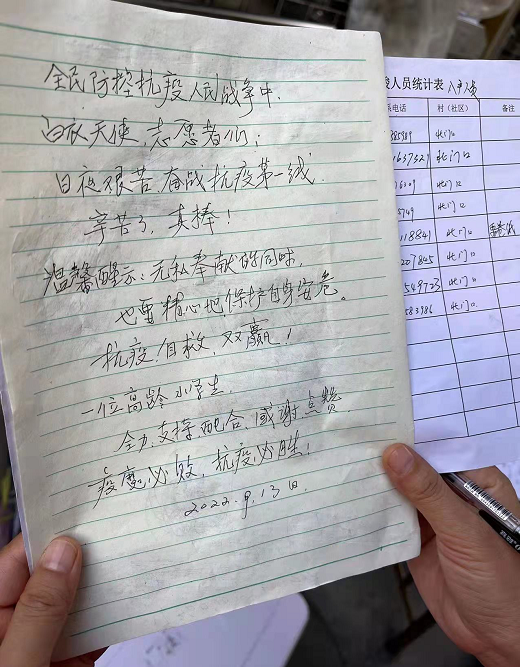 全民防控抗疫人民战争中.
白衣天使,志愿者们:
日夜艰苦奋战抗疫第一线
辛苦了,真棒!
温馨醒示:无私奉献的同时,
也要精心地保护自身安危。
抗疫,自救,双赢!
一位高龄小学生.
全力支持,配合,感谢点赞
疫魔必败,抗疫必胜!
2022.9.13日.
人员统计表 入户2
电话 村(社区) 备注
北门口
北门口
北门口
北门口
118841 北门口
207845 北门口
北门口
583986 北门口